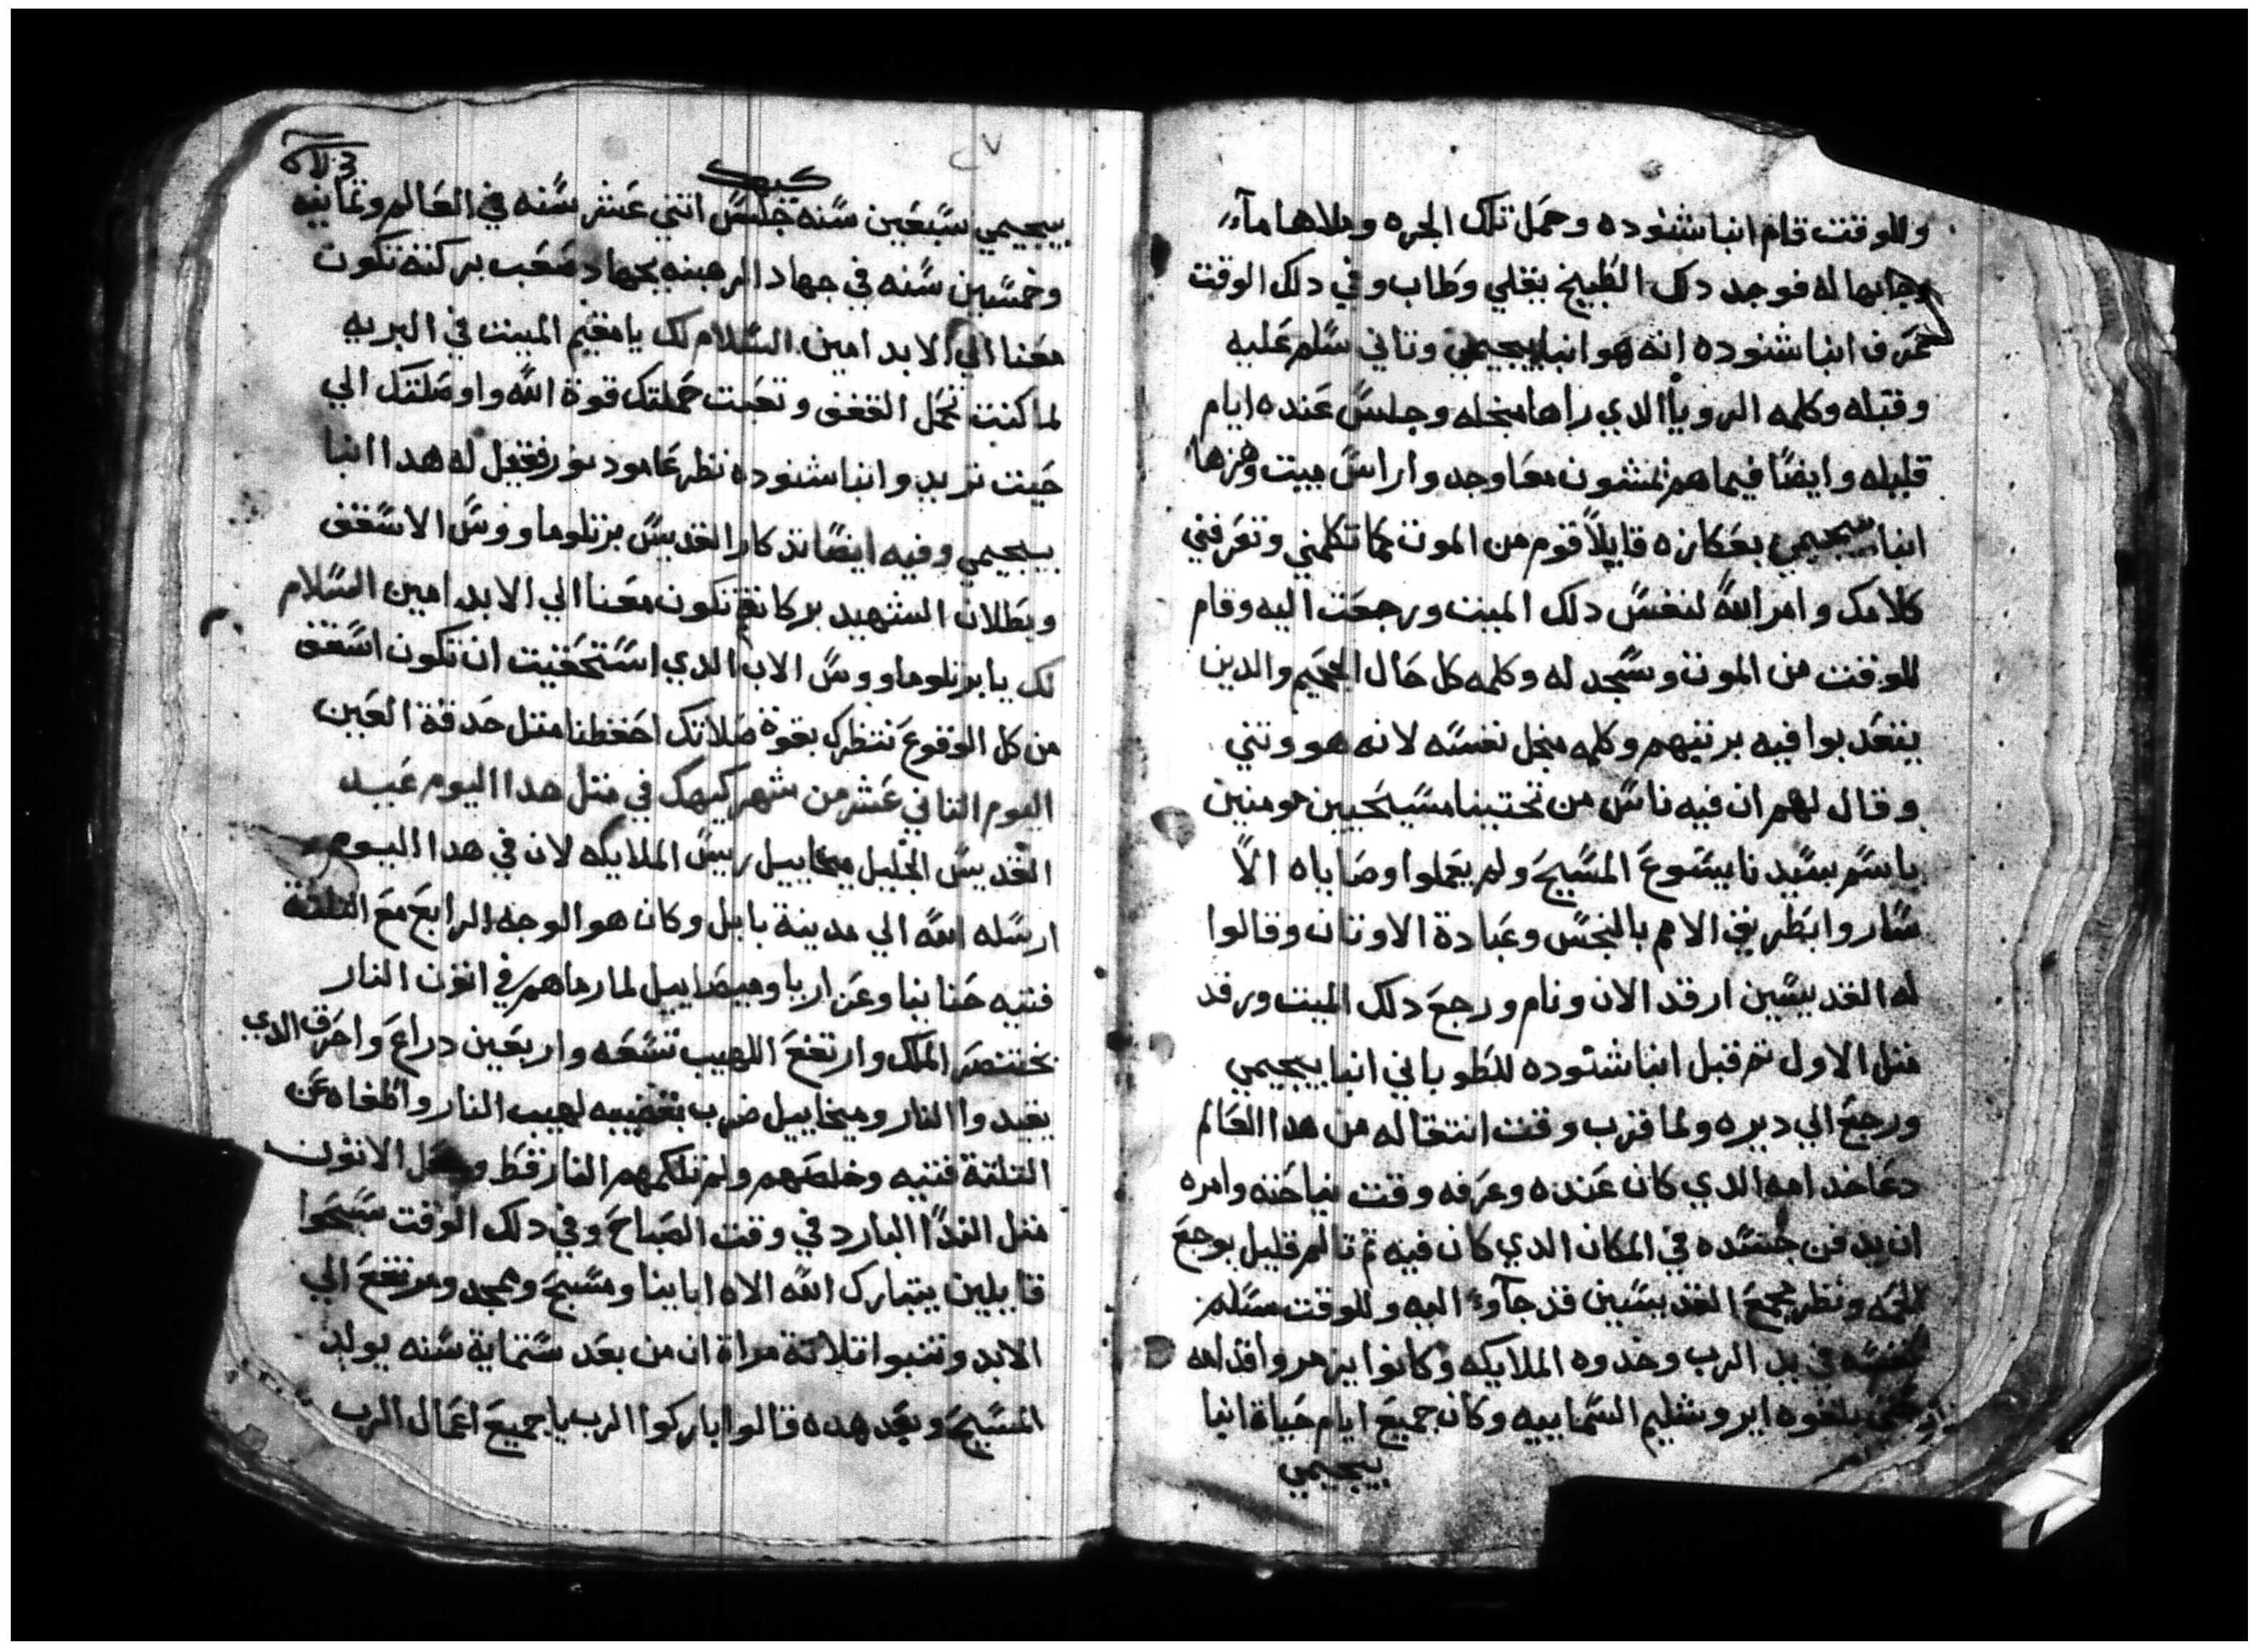 وللوقت قام انبا شنوده وحمل تلك الجره وملاها مآء
وجابها له فوجد دلك الطبيخ بيغلي وطاب وفي دلك الوقت
عرف انبا شنوده انه هو انبا بيجيمي وتاني سلم عليه
وقبله وكلمه الرويا الدي راها منجله وجلس عنده ايام
قليله وايضا فيما هم يمشون معا وجدوا راس ميت وهزها
انبا بيجيمي بعكازه قايلا قوم من الموت كما تكلمني وتعرفني
كلامك وامر الله لنفس دلك الميت ورجعت اليه وقام
للوقت من الموت وسجد له وكلمه كل حال الجحيم والدين
يتعدبوا فيه برتبهم وكلمه منجل نفسه لانه هو وتني
وقال لهم ان فيه ناس من تحتينا مسيحيين مومنين
باسم سيدنا يسوع المسيح ولم يعملوا وصاياه الا
ساروا بطريق الامم بالنجس وعبادة الاوتان وقالوا
له القديسين ارقد الان ونام ورجع دلك الميت ورقد
متل الاول تم قبل انبا شنوده للطوباني انبا بيجيمي
ورجع الي ديره ولما قرب وقت انتقاله من هدا العالم
دعا خدامه الدي كان عنده وعرفه وقت نياحته وامره
ان يدفن جسده في المكان الدي كان فيه تم تالم قليل بوجع
الحمه ونظر مجمع القديسين قد جآوء اليه وللوقت سلم
نفسه في يد الرب وخدوه الملايكه وكانوا يزمروا قدامه
حتي بلغوه ايروشليم السماييه وكان جميع ايام حياة انبا
بيجيمي
كيهك
بيجيمي سبعين سنه جلس اتني عشر سنه في العالم وتمانيه
وخمسين سنه في جهاد الرهبنه بجهاد صعب بركته تكون
معنا الي الابد امين السلام لك يا مقيم الميت في البريه
لما كنت تحمل القفف وتعبت حملتك قوة الله واوصلتك الي
حيت تريد وانبا شنوده نظر عامود نور فقيل له هدا انبا
بيجيمي وفيه ايضا تدكار القديس برتلوماووس الاسقف
وبطلان الشهيد بركاتهم تكون معنا الي الابد امين السلام
لك يا برتلوماووس الاب الدي استحقيت ان تكون اسقف
من كل الوقوع ننتظرك بقوة صلاتك احفظنا متل حدقة العين
اليوم التاني عشر من شهر كيهك في متل هدا اليوم عيد
القديس الجليل ميخاييل رييس الملايكه لان في هدا اليوم
ارسله الله الي مدينة بابل وكان هو الوجه الرابع مع التلتة
فتيه حنانيا وعزاريا وميصاييل لما رماهم في اتون النار
بختنصر الملك وارتفع اللهيب تسعه واربعين دراع واحرق الدي
يعبدوا النار وميخاييل ضرب بقضيبه لهيب النار واطفاه عن
التلتة فتيه وخلصهم ولم تلكمهم النار قط وجعل الاتون
متل الندا البارد في وقت الصباح وفي دلك الوقت سبحوا
قايلين يتبارك الله الاه ابايينا ومسبح وممجد ومرتفع الي
الابد وتنبوا تلاتة مراة ان من بعد ستماية سنه يولد
المسيح وبعد هده قالوا باركوا الرب يا جميع اعمال الرب